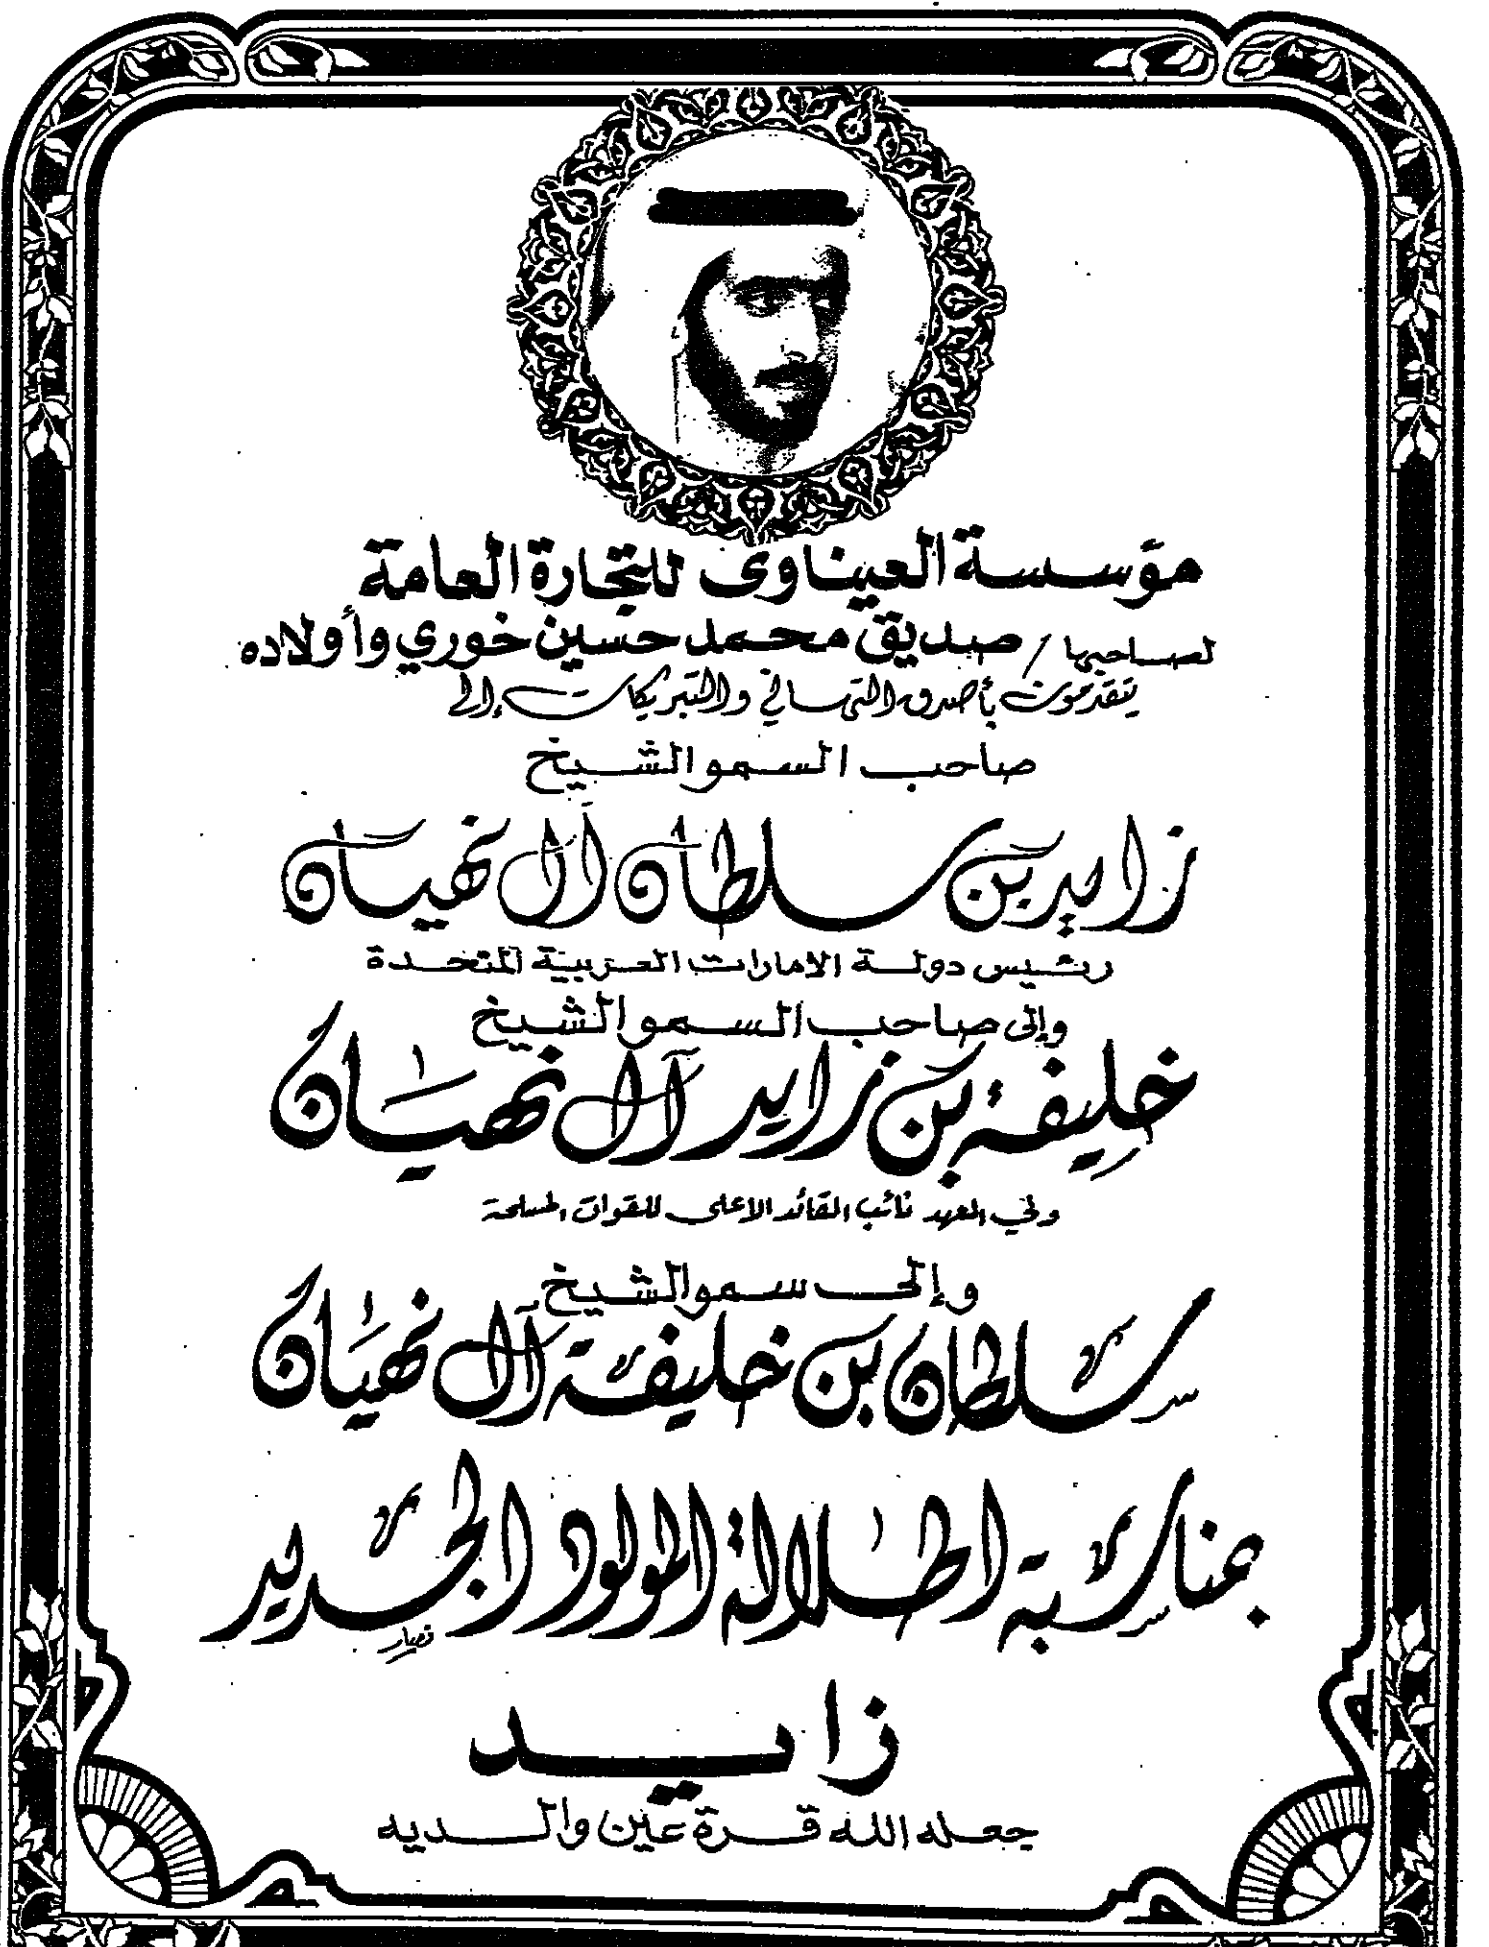 مؤسسة العيناوى للتجارة العامة
لصاحبها / صديق محمد حسين خوري وأولاده
يتقدمون بأصدق التهاني والتبريكات إلى
صاحب السمو الشيخ
زايد بن سلطان آل نهيان
رئيس دولة الامارات العربية المتحدة
وإلى صاحب السمو الشيخ
خليفة بن زايد آل نهيان
ولي العهد نائب القائد الاعلى للقوات المسلحة
وإلى سمو الشيخ
سلطان بن خليفة آل نهيان
بمناسبة اطلالة المولود الجديد
نصار
زايد
جعله الله قرة عين والديه